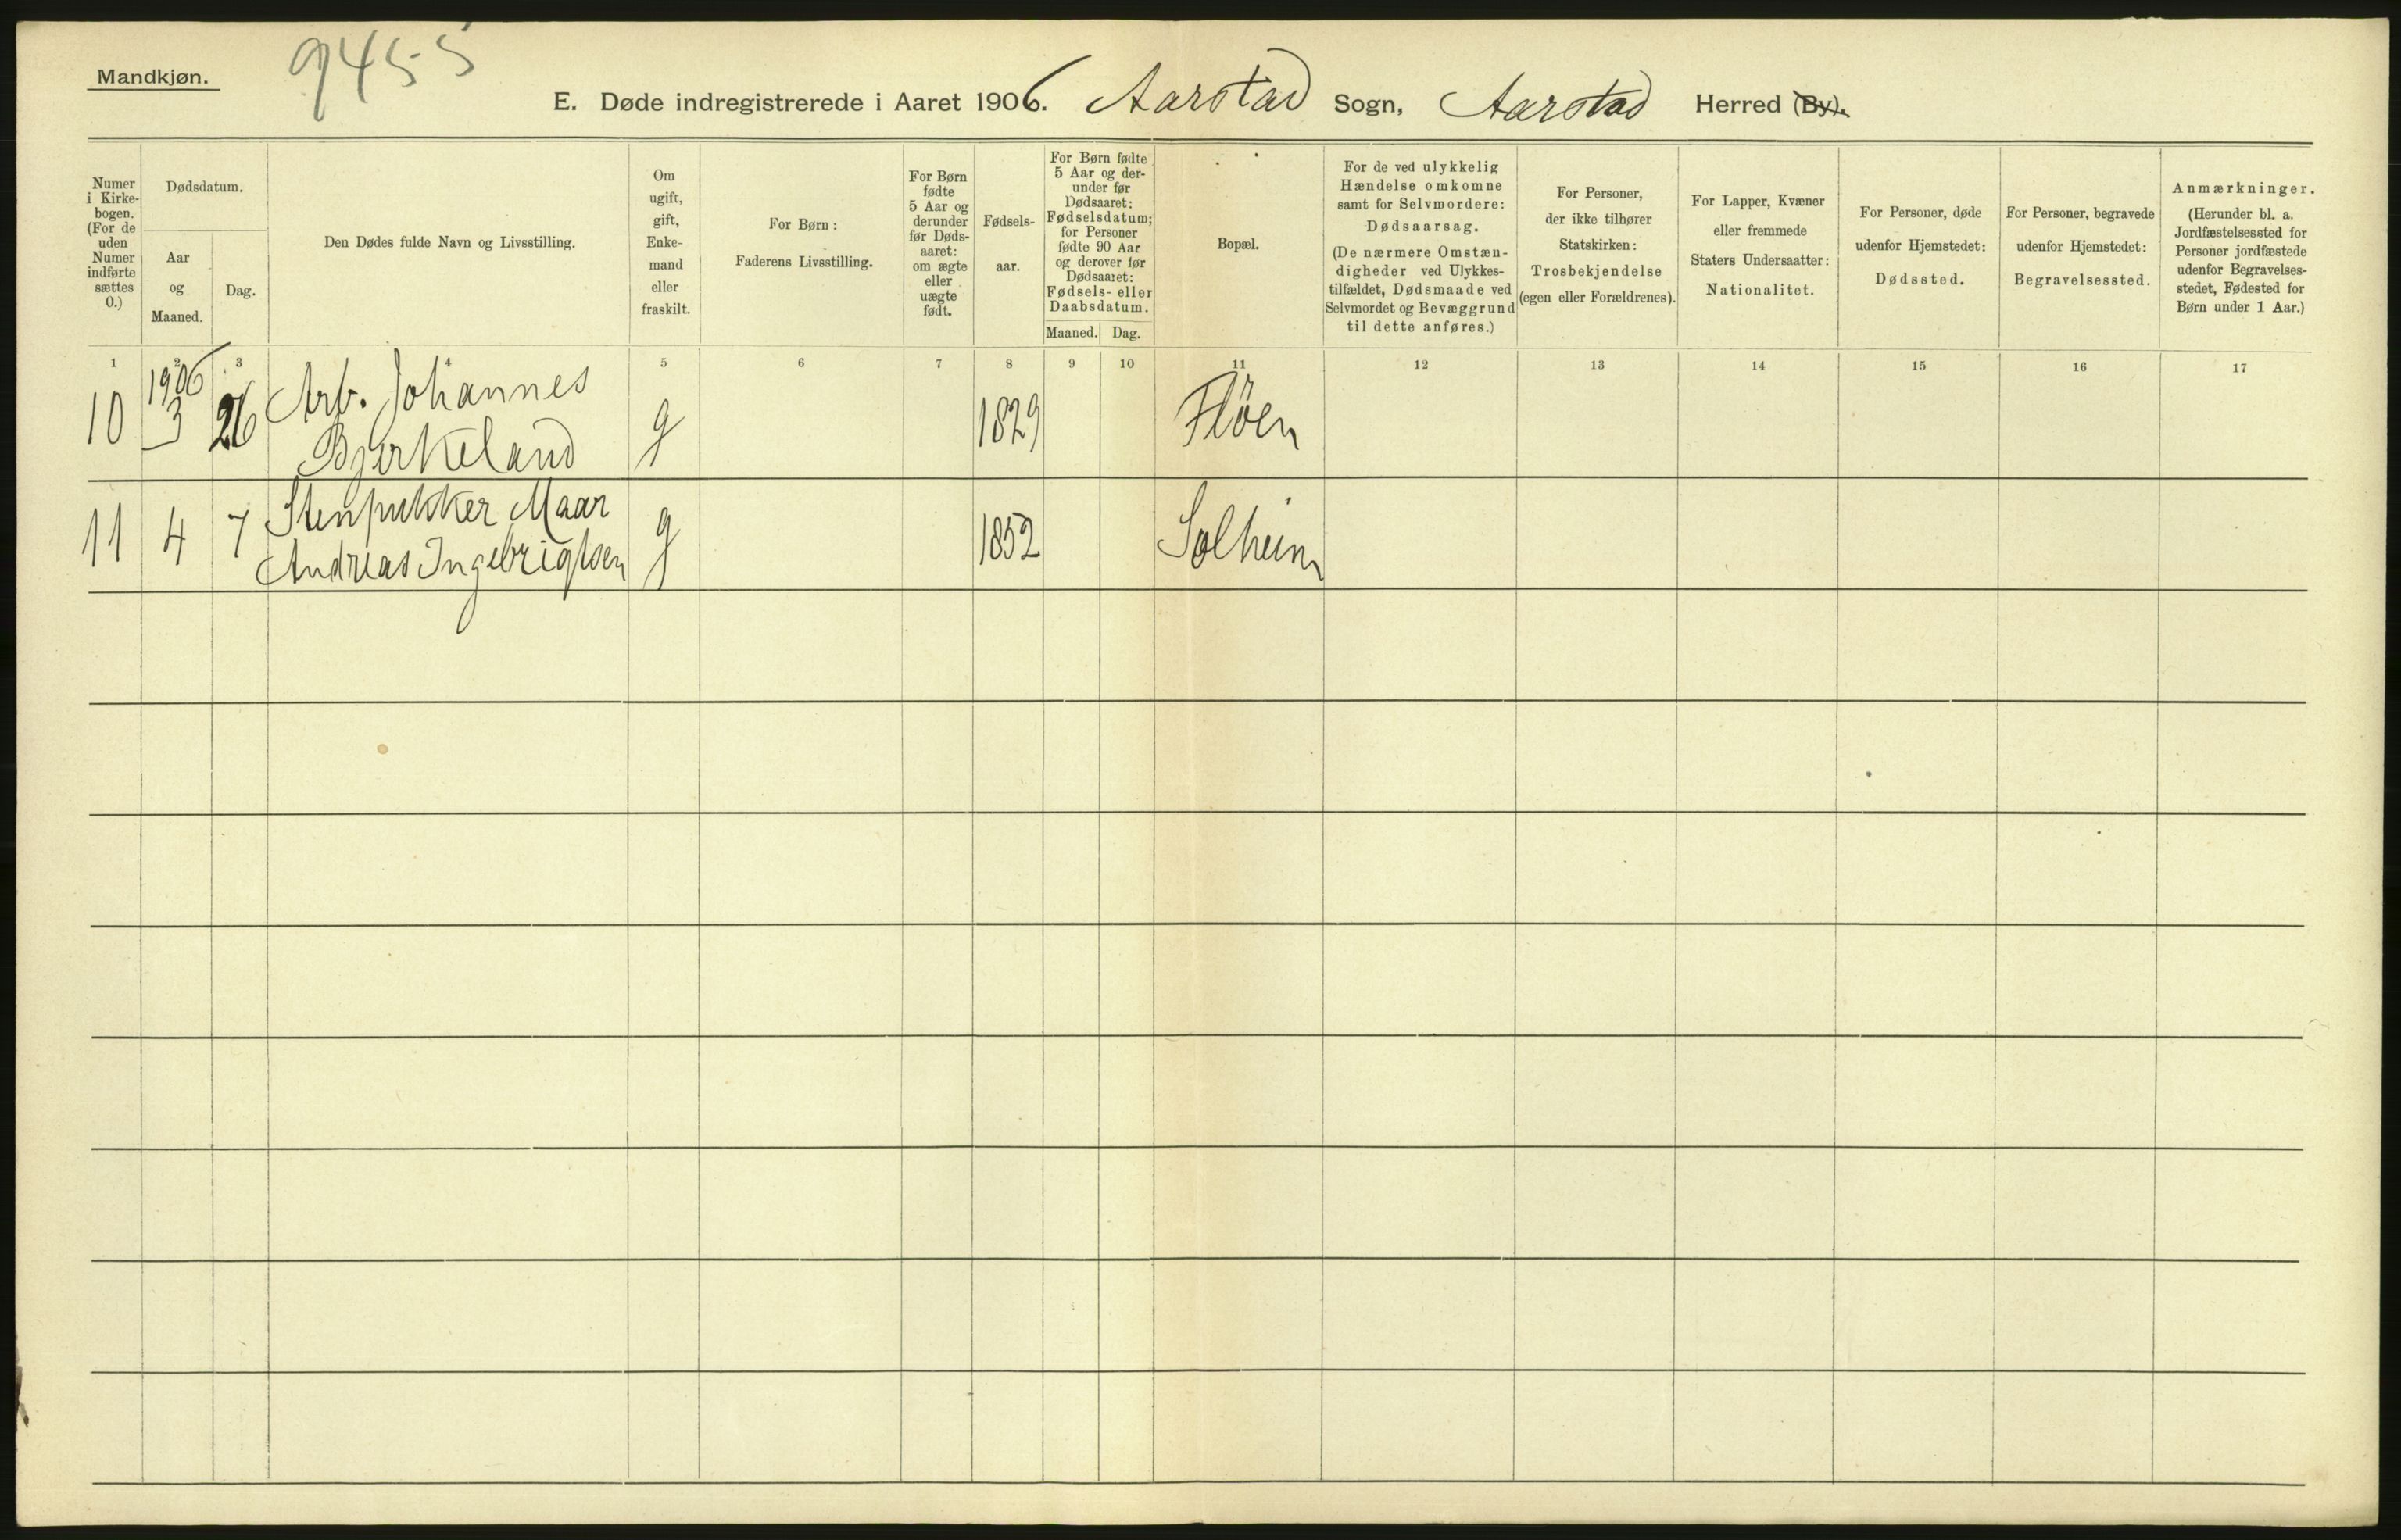 Mandkjøn.
9455
E. Døde indregistrerede i Aaret 1906. Aarstad Sogn, Aarstad Herred (By).
Numer
i Kirke-
bogen.
(For de
uden
Numer
indførte
sættes
0.)
Dødsdatum.
Aar
og
Maaned.
Dag.
Den Dødes fulde Navn og Livsstilling.
Om
ugift,
gift,
Enke-
mand
eller
fraskilt.
For Børn:
Faderens Livsstilling.
For Børn
fødte
5 Aar og
derunder
før Døds-
aaret:
om ægte
eller
uægte
født.
Fødsels-
aar.
For Børn fødte
5 Aar og der-
under før
Dødsaaret:
Fødselsdatum;
for Personer
fødte 90 Aar
og derover før
Dødsaaret:
Fødsels- eller
Daabsdatum.
Maaned. Dag.
Bopæl.
For de ved ulykkelig
Hændelse omkomne
samt for Selvmordere:
Dødsaarsag.
(De nærmere Omstæn-
digheder ved Ulykkes-
tilfældet, Dødsmaade ved
Selvmordet og Bevæggrund
til dette anføres.)
For Personer,
der ikke tilhører
Statskirken:
Trosbekjendelse
(egen eller Forældrenes).
For Lapper, Kvæner
eller fremmede
Staters Undersaatter:
Nationalitet.
For Personer, døde
udenfor Hjemstedet:
Dødssted.
For Personer, begravede
udenfor Hjemstedet:
Begravelsessted.
Anmærkninger.
(Herunder bl. a.
Jordfæstelsessted for
Personer jordfæstede
udenfor Begravelses-
stedet, Fødested for
Børn under 1 Aar.)
1 2 3 4 5 6 7 8 9 10 11 12 13 14 15 16 17
1906
10 3 26 Arb. Johannes g 1829 Fløen
Bjerkeland
11 4 7 Stenpukker Maar g 1852 Solheim
Andreas Ingebrigtsen